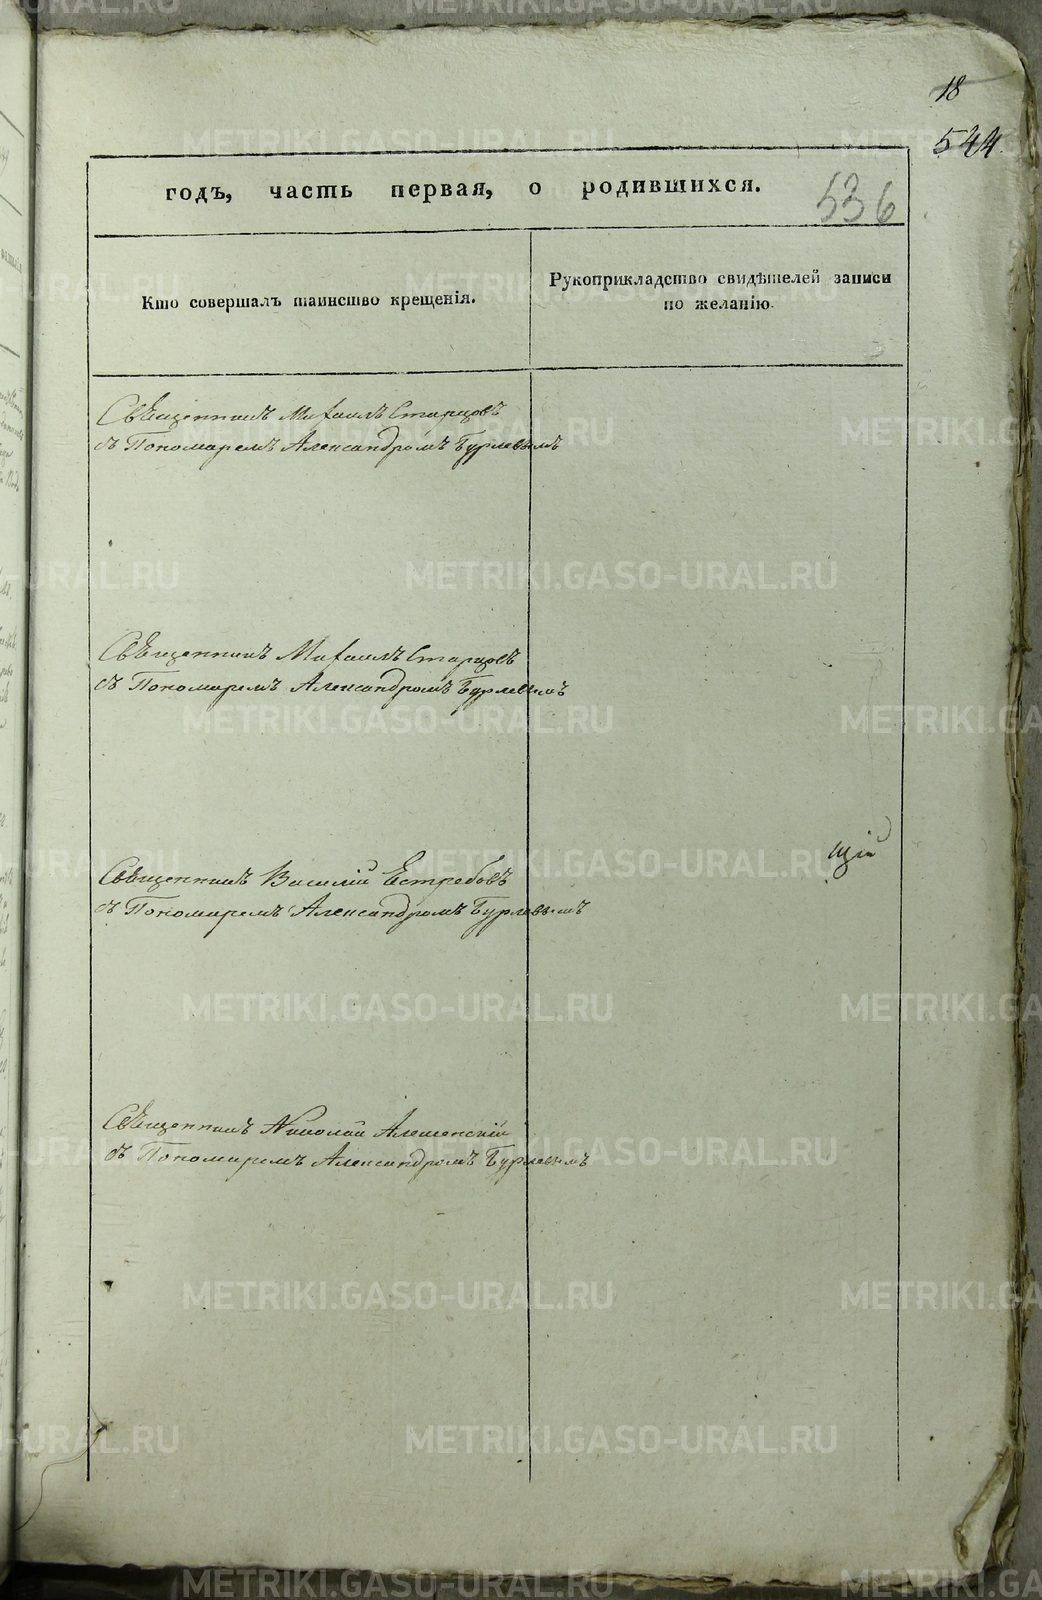 18
544
годъ, часть первая, о родившихся.
536
Кто совершалъ таинство крещенія.
Рукоприкладство свидѣтелей записи
по желанію.
Священникъ Михаилъ Старцовъ
съ Пономаремъ Александромъ Бурлевымъ
Священникъ Михаилъ Старцовъ
съ Пономаремъ Александромъ Бурлевымъ
щій
Священникъ Василій Ястребовъ
съ Пономаремъ Александромъ Бурлевымъ
Священникъ Николай
съ Пономаремъ Александромъ Бурлевымъ
METRIKI.GASO-URAL.RU